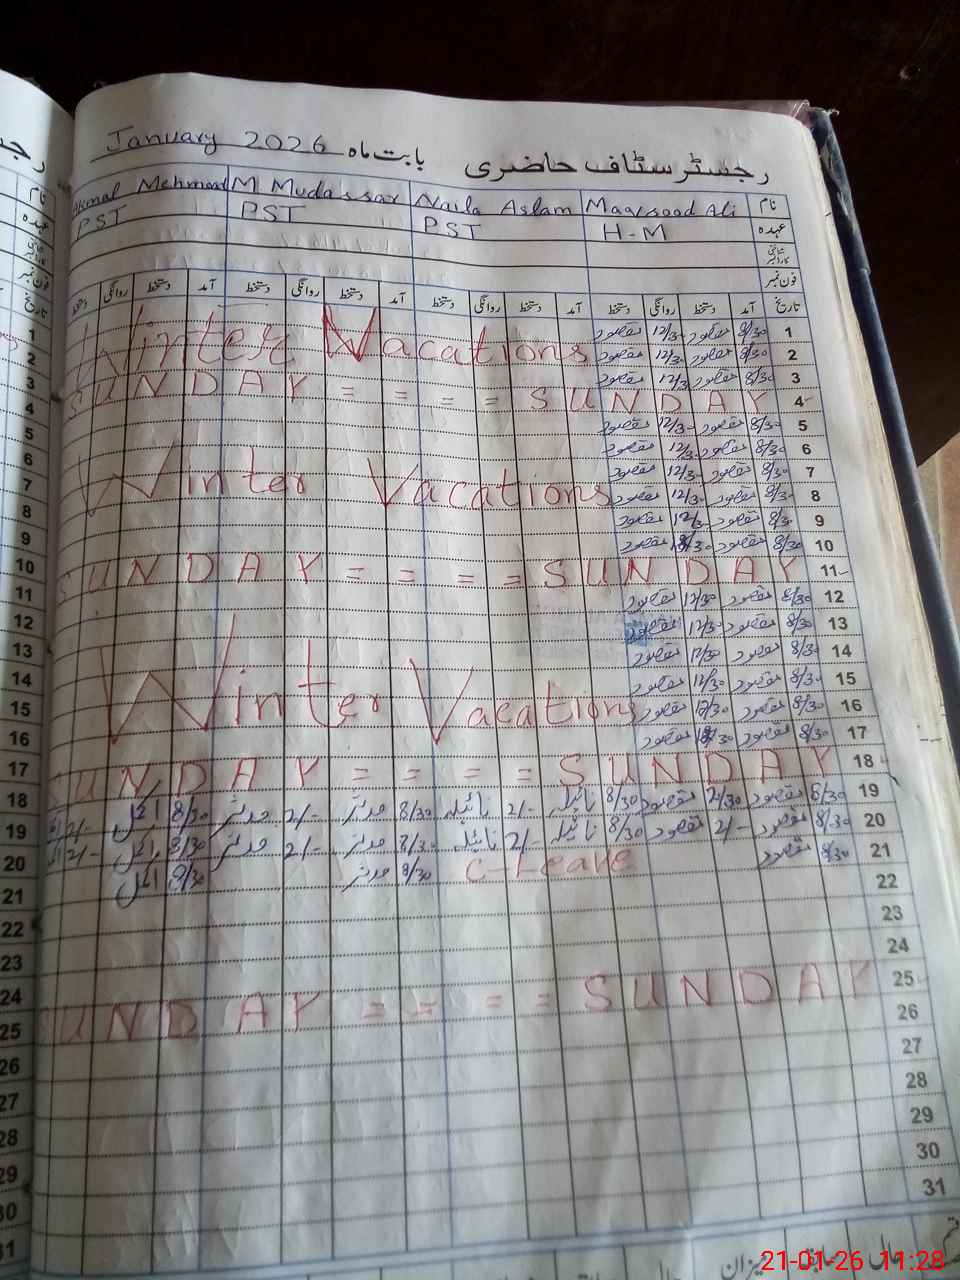 January 2026 بابت ماہ رجسٹر سٹاف حاضری
Akmal Mehmood M Mudassar Naila Aslam Maqsood Ali نام
PST PST PST H-M عہدہ
فون نمبر
دستخط روانگی دستخط آمد دستخط روانگی دستخط آمد دستخط روانگی دستخط آمد دستخط روانگی دستخط آمد تاریخ
Winter Vacations مقصود 12/30 مقصود 8/30 1
مقصود 12/30 مقصود 8/30 2
مقصود 12/30 مقصود 8/30 3
SUNDAY = = = = SUNDAY 4
مقصود 12/30 مقصود 8/30 5
مقصود 12/30 مقصود 8/30 6
Winter Vacations مقصود 12/30 مقصود 8/30 7
مقصود 12/30 مقصود 8/30 8
مقصود 12/30 مقصود 8/30 9
مقصود مقصود 8/30 10
SUNDAY = = = = SUNDAY 11
مقصود 12/30 مقصود 8/30 12
مقصود 12/30 مقصود 8/30 13
مقصود 12/30 مقصود 8/30 14
مقصود 12/30 مقصود 8/30 15
Winter Vacations مقصود 12/30 مقصود 8/30 16
مقصود مقصود 8/30 17
SUNDAY = = = = SUNDAY 18
2/- اکمل 8/30 مدثر 2/- مدثر 8/30 نائیلہ 2/- نائیلہ 8/30 مقصود 2/30 مقصود 8/30 19
2/- اکمل 8/30 مدثر 2/- مدثر 8/30 نائیلہ 2/- نائیلہ 8/30 مقصود 2/- مقصود 8/30 20
اکمل 8/30 مدثر 8/30 C-Leave مقصود 8/30 21
22
23
24
SUNDAY = = = = SUNDAY 25
26
27
28
29
30
31
میزان سابقہ حال
21-01-26 11:28